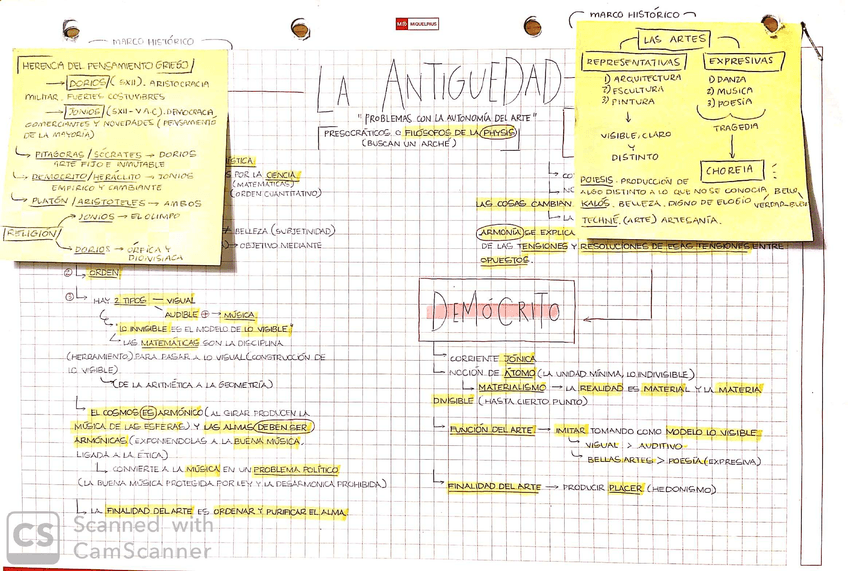 MARCO HISTÓRICO
HERENCIA DEL PENSAMIENTO GRIEGO
DORIOS/(SXII). ARISTOCRACIA
MILITAR, FUERTES COSTUMBRES
JONIOS/(SXII-V A.C). DEMOCRACIA
COMERCIANTES Y NOVEDADES (PENSAMIENTO
DE LA MAYORÍA)
PITAGORAS/SÓCRATES → DORIOS
ARTE FIJO E INMUTABLE
DEMOCRITO/HERÁCLITO → JONIOS
EMPIRICO Y CAMBIANTE
PLATÓN/ARISTOTELES → AMBOS
RELIGIÓN
JONIOS → EL OLIMPO
DORIOS → ÓRFICA Y
MIQUELRIUS
LA ANTIGUEDAD
"PROBLEMAS CON LA AUTONOMÍA DEL ARTE"
PRESOCRÁTICOS O FILÓSOFOS DE LA PHYSIS
(BUSCAN UN ARCHÉ)
MARCO HISTÓRICO
LAS ARTES
REPRESENTATIVAS
1) ARQUITECTURA
2) ESCULTURA
3) PINTURA
VISIBLE, CLARO
Y
DISTINTO
EXPRESIVAS
1) DANZA
2) MUSICA
3) POESÍA
TRAGEDIA
CHOREIA
POIESIS. PRODUCCIÓN DE
ALGO DISTINTO A LO QUE NO SE CONOCIA
KALÓS. BELLEZA, DIGNO DE ELOGIO
TECHNÉ. (ARTE) ARTESANÍA.
ÍSTICA
S POR LA CIENCIA
(MATEMÁTICAS)
(ORDEN CUANTITATIVO)
BELLEZA (SUBJETIVIDAD)
) → OBJETIVO MEDIANTE
② ORDEN
③ HAY 2 TIPOS — VISUAL
AUDIBLE ⊕ → MÚSICA
"LO INVISIBLE ES EL MODELO DE LO VISIBLE"
LAS MATEMÁTICAS SON LA DISCIPLINA
(HERRAMIENTO) PARA PASAR A LO VISUAL (CONSTRUCCIÓN DE
LO VISIBLE)
(DE LA ARITMÉTICA A LA GEOMETRÍA)
EL COSMOS ES ARMÓNICO (AL GIRAR PRODUCEN LA
MÚSICA DE LAS ESFERAS) Y LAS ALMAS DEBEN SER
ARMÓNICAS (EXPONIENDOLAS A LA BUENA MÚSICA,
LIGADA A LA ÉTICA)
CONVIERTE A LA MÚSICA EN UN PROBLEMA POLÍTICO
(LA BUENA MÚSICA PROTEGIDA POR LEY Y LA DESARMONICA PROHIBIDA)
LA FINALIDAD DEL ARTE ES ORDENAR Y PURIFICAR EL ALMA
LAS COSAS CAMBIAN
ARMONÍA SE EXPLICA
DE LAS TENSIONES Y RESOLUCIONES DE ESAS TENSIONES ENTRE
OPUESTOS.
DEMÓCRITO
CORRIENTE JÓNICA
NOCIÓN DE ÁTOMO (LA UNIDAD MÍNIMA, LO INDIVISIBLE)
MATERIALISMO → LA REALIDAD ES MATERIAL Y LA MATERIA
DIVISIBLE (HASTA CIERTO PUNTO)
FUNCIÓN DEL ARTE → IMITAR TOMANDO COMO MODELO LO VISIBLE
VISUAL > AUDITIVO
BELLAS ARTES > POESÍA (EXPRESIVA)
FINALIDAD DEL ARTE → PRODUCIR PLACER (HEDONISMO)
CS Scanned with
CamScanner